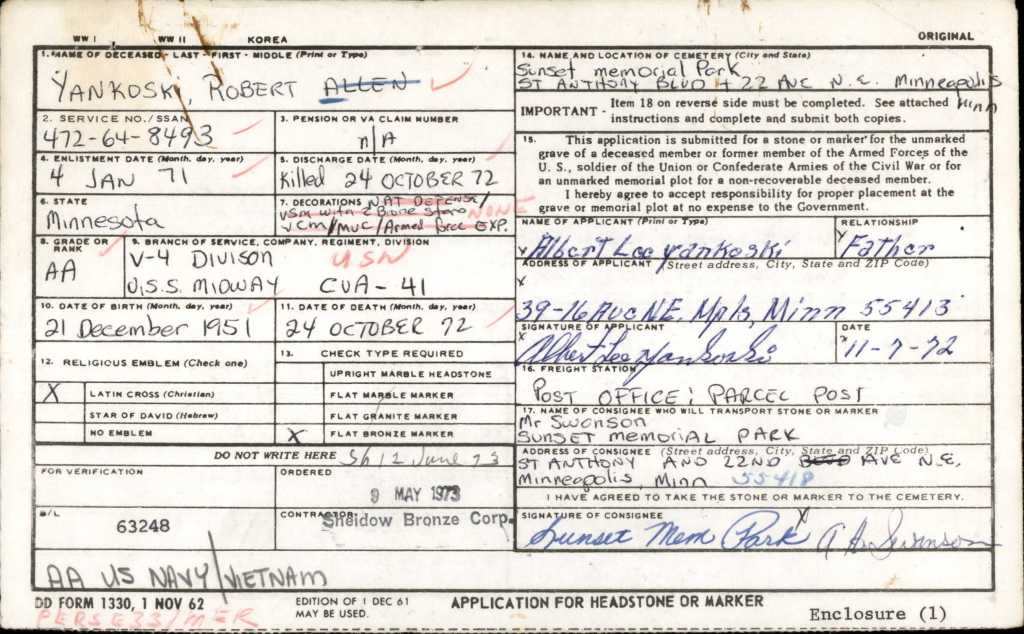 WW I WW II KOREA ORIGINAL
1. NAME OF DECEASED - LAST - FIRST - MIDDLE (Print or Type)
YANKOSKI, ROBERT ALLEN
2. SERVICE NO./SSAN
472-64-8493
3. PENSION OR VA CLAIM NUMBER
n/A
4. ENLISTMENT DATE (Month, day, year)
4 JAN 71
5. DISCHARGE DATE (Month, day, year)
Killed 24 OCTOBER 72
6. STATE
Minnesota
7. DECORATIONS NAT DEFENSE/
VSM with 2 Bronze Stars NONE
VCM/MUC/Armed force EXP.
8. GRADE OR RANK
AA
9. BRANCH OF SERVICE, COMPANY, REGIMENT, DIVISION
V-4 Divison USN
U.S.S. MIDWAY CVA-41
10. DATE OF BIRTH (Month, day, year)
21 December 1951
11. DATE OF DEATH (Month, day, year)
24 OCTOBER 72
12. RELIGIOUS EMBLEM (Check one)
X LATIN CROSS (Christian)
STAR OF DAVID (Hebrew)
NO EMBLEM
13. CHECK TYPE REQUIRED
UPRIGHT MARBLE HEADSTONE
FLAT MARBLE MARKER
FLAT GRANITE MARKER
X FLAT BRONZE MARKER
DO NOT WRITE HERE Sh 12 June 73
FOR VERIFICATION
ORDERED
9 MAY 1973
B/L
63248
CONTRACTOR
Sheidow Bronze Corp.
AA US NAVY/VIETNAM
14. NAME AND LOCATION OF CEMETERY (City and State)
Sunset memorial Park
ST ANTHONY BLVD + 22 AVE N.E. Minneapolis
Minn
IMPORTANT - Item 18 on reverse side must be completed. See attached
instructions and complete and submit both copies.
15. This application is submitted for a stone or marker for the unmarked
grave of a deceased member or former member of the Armed Forces of the
U. S., soldier of the Union or Confederate Armies of the Civil War or for
an unmarked memorial plot for a non-recoverable deceased member.
I hereby agree to accept responsibility for proper placement at the
grave or memorial plot at no expense to the Government.
NAME OF APPLICANT (Print or Type)
x Albert Lee Yankoski
RELATIONSHIP
Father
ADDRESS OF APPLICANT (Street address, City, State and ZIP Code)
x
39-16 Ave NE. Mpls, Minn 55413
SIGNATURE OF APPLICANT
x Albert Lee Yankoski
DATE
x 11-7-72
16. FREIGHT STATION
POST OFFICE; PARCEL POST
17. NAME OF CONSIGNEE WHO WILL TRANSPORT STONE OR MARKER
Mr Swanson
SUNSET MEMORIAL PARK
ADDRESS OF CONSIGNEE (Street address, City, State and ZIP Code)
ST ANTHONY AND 22ND BLVD AVE N.E.
Minneapolis, Minn 55418
I HAVE AGREED TO TAKE THE STONE OR MARKER TO THE CEMETERY.
SIGNATURE OF CONSIGNEE X
Sunset Mem Park A H Swanson
DD FORM 1330, 1 NOV 62 EDITION OF 1 DEC 61
MAY BE USED.
APPLICATION FOR HEADSTONE OR MARKER
Enclosure (1)
PERSE33/MER